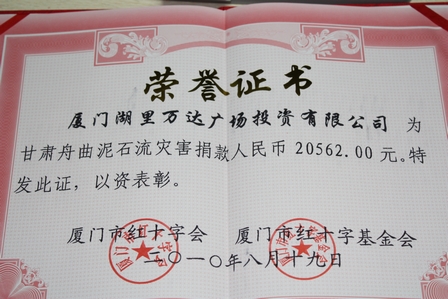 荣誉证书
厦门湖里万达广场投资有限公司 为
甘肃舟曲泥石流灾害捐款人民币 20562.00 元。特
发此证，以资表彰。
厦门市红十字会 厦门市红十字基金会
二〇一〇年八月十九日